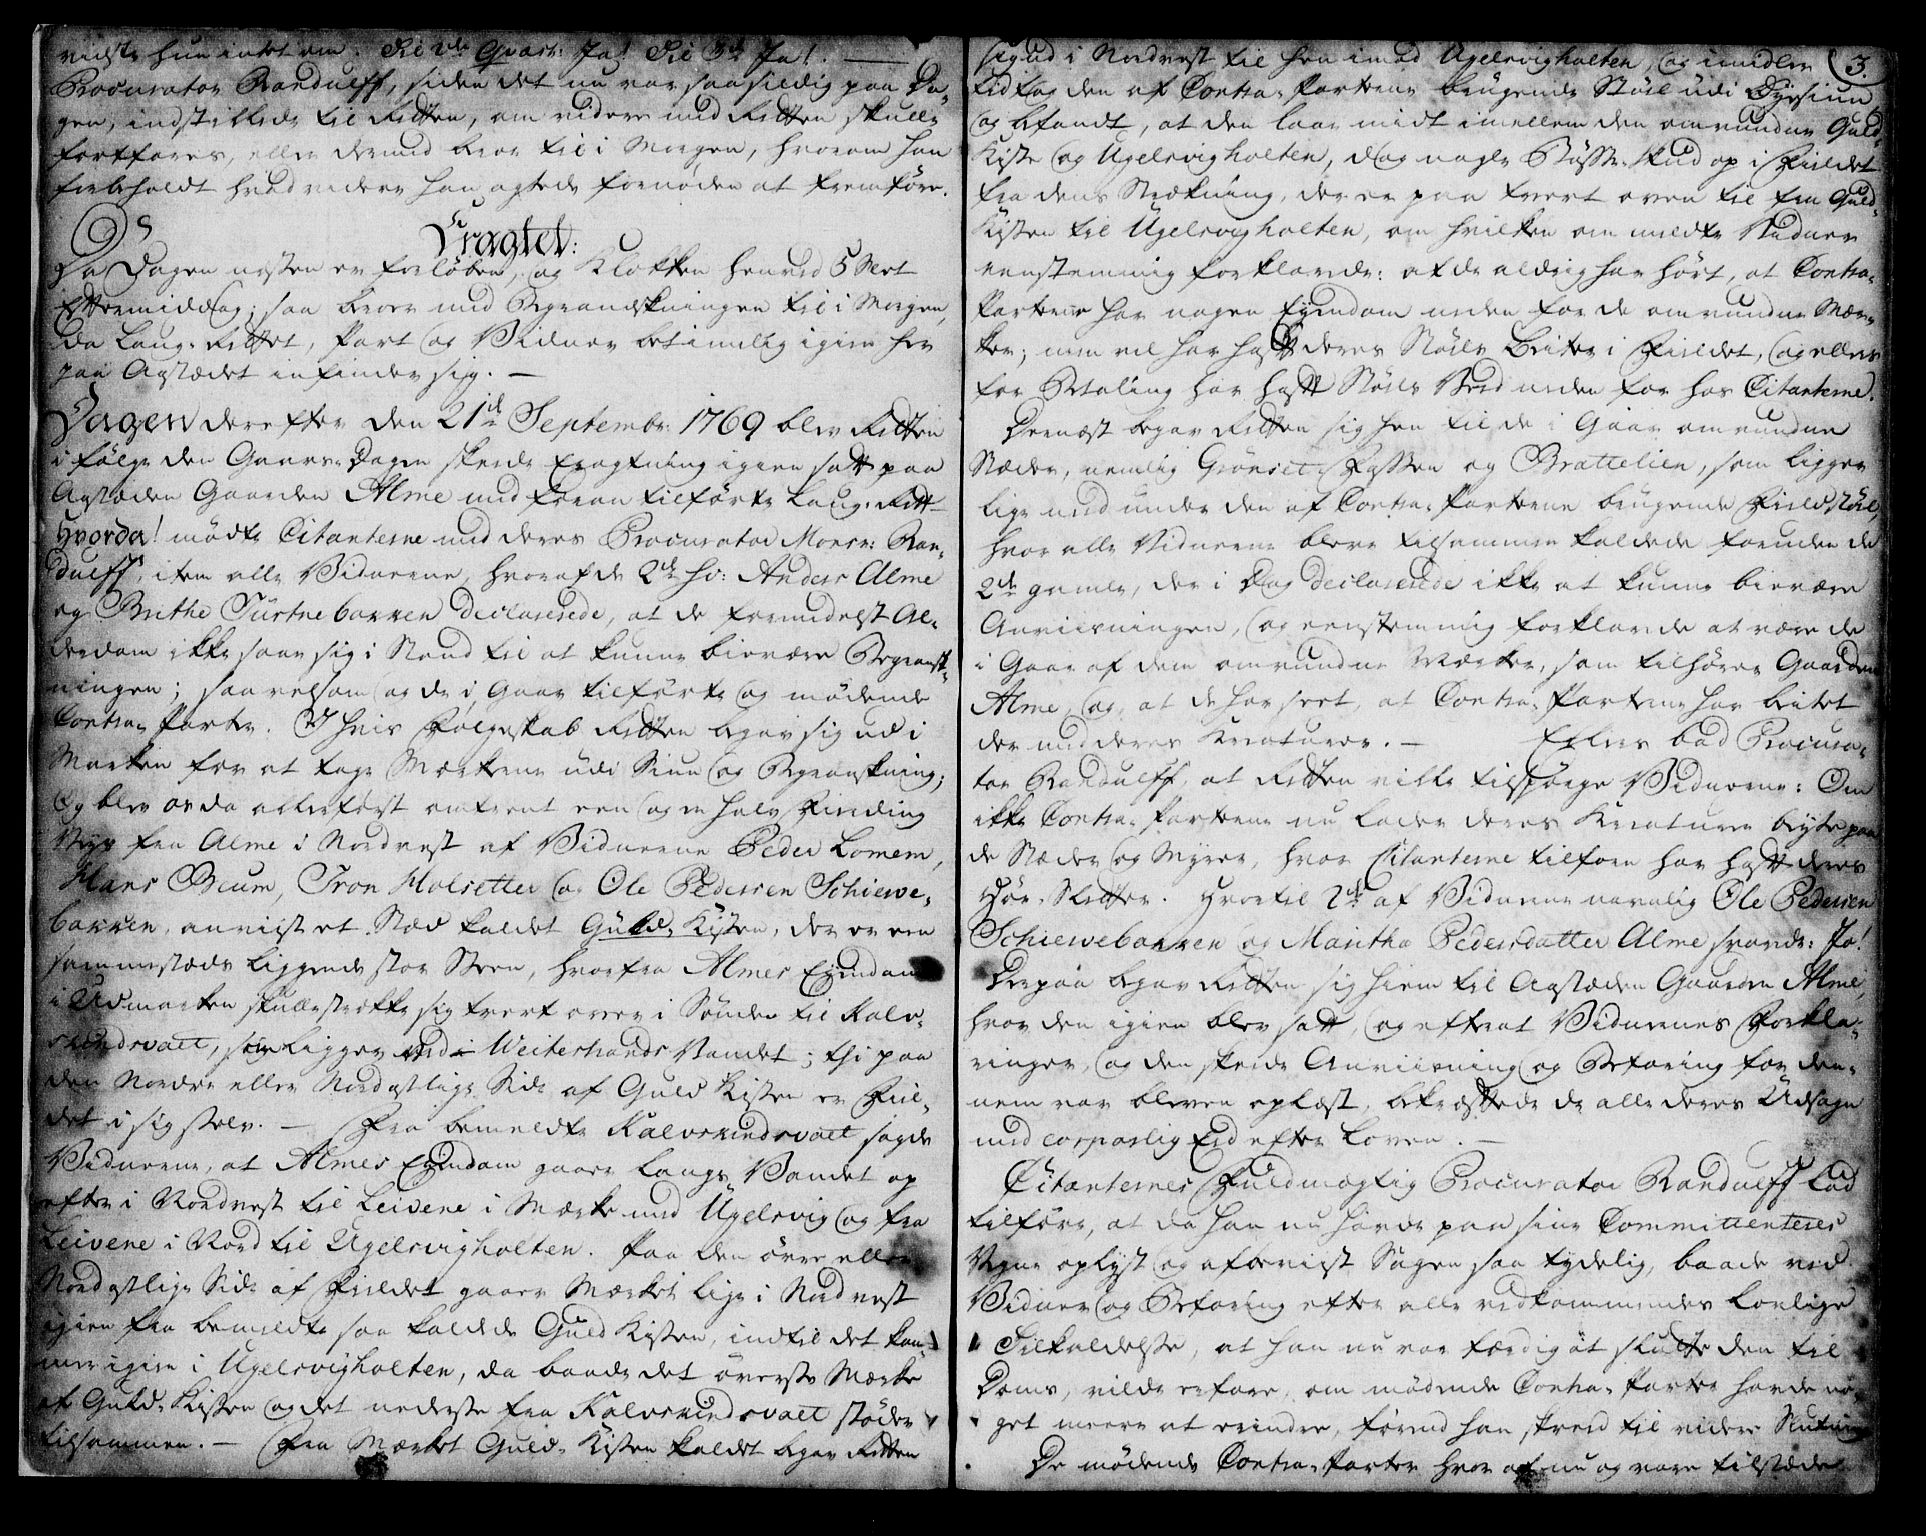 vidste hun intet om. Til 2de Quæst: Ja! Til 3de Ja! —
Procurator Randulff, siden det nu var saa sildig paa Da-
gen, indstillede til Retten, om videre med Retten skulle
fortfares, eller dermed beroe til i Morgen, hvorom han
forbeholdt hvad videre han agtede fornøden at fremføre.
Eragtet:
Da Dagen næsten er forløben, og Klokken henved 5 Slet
Eftermiddag; saa beroer med Begranskningen til i Morgen,
da Laug-Rettet, Part og Vidner betimelig igien her
paa Aastædet indfinder sig. —
Dagen derefter den 21de Septembr: 1769 blev Retten
i følge den Gaars-Dagen skeede Eragtning igien satt paa
Aastæden Gaarden Alme med foran tilførte Laug-Rett
Hvorda! mødte Citanterne med deres Procurator Monsr: Ran-
dulff, item alle Vidnerne, hvoraf de 2de Hr: Anders Alme
og Brithe Türtnebakken declarerede, at de formedelst Al-
derdom ikke saae sig i Stand til at kunne bievære Begransk-
ningen; saavelsom og de i Gaar tilførte og mødende
Contra-Parter. I hvis Følgeskab Retten begav sig ud i
Marken for at tage Mærkerne udi Siun og Begranskning;
Og blev da allerførst omtrent een og en halv Fierding
Veys fra Alme i Nordvest af Vidnerne Peder Lomem,
Hans Beum, Tron Molsetter og Ole Pedersen Schiewe-
bakken, anviist et Stæd kaldet Guld-Kisten, der er een
sammestæds liggende stor Steen, hvorfra Almes Eyendom
i Udmarken skulle strække sig tvert over i Sønden til Kalv-
skindsvaet, som ligger ved Weitestrands Vandet; thi paa
den Nordre eller Nordostlige Side af Guld Kisten er Fiel-
det i sig selv. — Fra bemeldte Kalvskindsvaet sagde
Vidnerne, at Almes Eyendom gaaer langs Vandet op
efter i Nordvest til Leivene i Mærke med Ugelsvig og fra
Leivene i Nord til Ugelsvigholten. Paa den øvre eller
Nordostlige Side af Fieldet gaaer Mærket lige i Nordvest
igien fra bemeldte saa kaldede Guld Kisten, indtil det kom-
mer igien i Ugelsvigholten, da baade det øverste Mærke
af Guld-Kisten og det nederste fra Kalvskindsvaet støder
tilsammen. — Fra Mærket Guld-Kisten kaldet begav Retten
3.
sig ud i Nordvest til hen imod Ugelsvigholten, og imidler-
tid tog den af Contra-Parterne brugende Støel udi Øyesiun
og befandt, at den laae midt imellem den omvundne Guld-
Kiste og Ugelsvigholten, dog nogle Bøsse-Skud op i Fieldet
fra dens Strækning, der er paa tvert over til fra Guld-
Kisten til Ugelsvigholten, om hvilken om meldte Vidner
eenstemmig forklarede: at de aldrig har hørt, at Contra-
Parterne har nogen Eyendom neden for de omvundne Mær-
ker; men vel har haft deres Støels Beiter i Fieldet, og ellers
for Betaling har haft Støels Veed neden for hos Citanterne.
Dernæst begav Retten sig hen til de i Gaar omvundne
Stæder, nemlig Grønset-Fossen og Brattelien, som ligger
lige ned under den af Contra-Parterne brugende Fieldstøel,
hvor alle Vidnerne bleve tilsammen kaldede foruden de
2de gamle, der i Dag declarerede ikke at kunne bievære
Anviisningen, og eenstemmig forklarede at være de
i Gaar af dem omvundne Mærker, som tilhører Gaarden
Alme, og at de har seet, at Contra-Parterne har beitet
der med deres Kreaturer. — Ellers bad Procura-
tor Randulff, at Retten ville tilspørge Vidnerne: Om
ikke Contra-Parterne nu lader deres Kreaturer beyte paa
de Stæder og Myrer, hvor Citanterne tilforn har haft deres
Høe-Sletter. Hvortil 2de af Vidnerne navnlig Ole Pedersen
Schiewebakken og Maritha Pedersdatter Alme svarede: Ja!
Derpaa begav Retten sig hiem til Aastæden Gaarden Alme,
hvor den igien blev satt, og efterat Vidnernes Forkla-
ringer, og den skeede Anviisning og Befaring for den-
nem var bleven oplæst, bekræftede de alle deres Udsagn
med corporlig Eed efter Loven. —
Citanternes Fuldmægtig Procurator Randulff lod
tilføre, at da han nu havde paa sine Committenteres
Vegne oplyst og afbeviist Sagen saa tydelig, baade ved
Vidner og Befaring efter alle vedkommendes lovlige
Tilkaldelse, at han nu var færdig at slutte den til
Doms, vilde erfare, om mødende Contra-Parter havde no-
get meere at erindre, førend han skreed til videre Slutning
De mødende Contra-Parter hvoraf nu og vare tilstæde